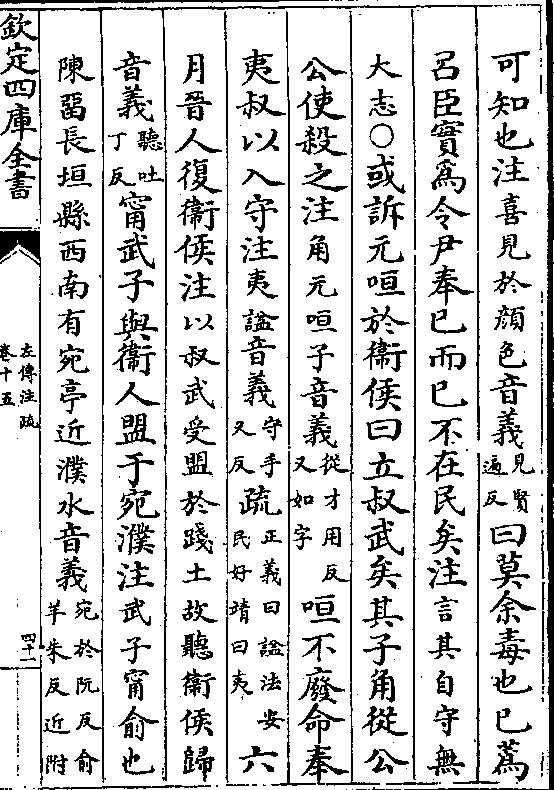 可知也注喜見於顏色音義見賢遍反曰莫余毒也已蒍
呂臣實為令尹奉已而已不在民矣注言其自守無
大志○或訴元咺於衞侯曰立叔武矣其子角從公
公使殺之注角元咺子音義從才用反又如字咺不廢命奉
夷叔以入守注夷謚音義守手又反疏正義曰謚法安民好靖曰夷六
月晉人復衞侯注以叔武受盟於踐土故聽衞侯歸
音義聽吐丁反甯武子與衞人盟于宛濮注武子甯俞也
陳畱長垣縣西南有宛亭近濮水音義宛於阮反俞羊朱反近附
欽定四庫全書
左傳注疏
卷十五
四十一